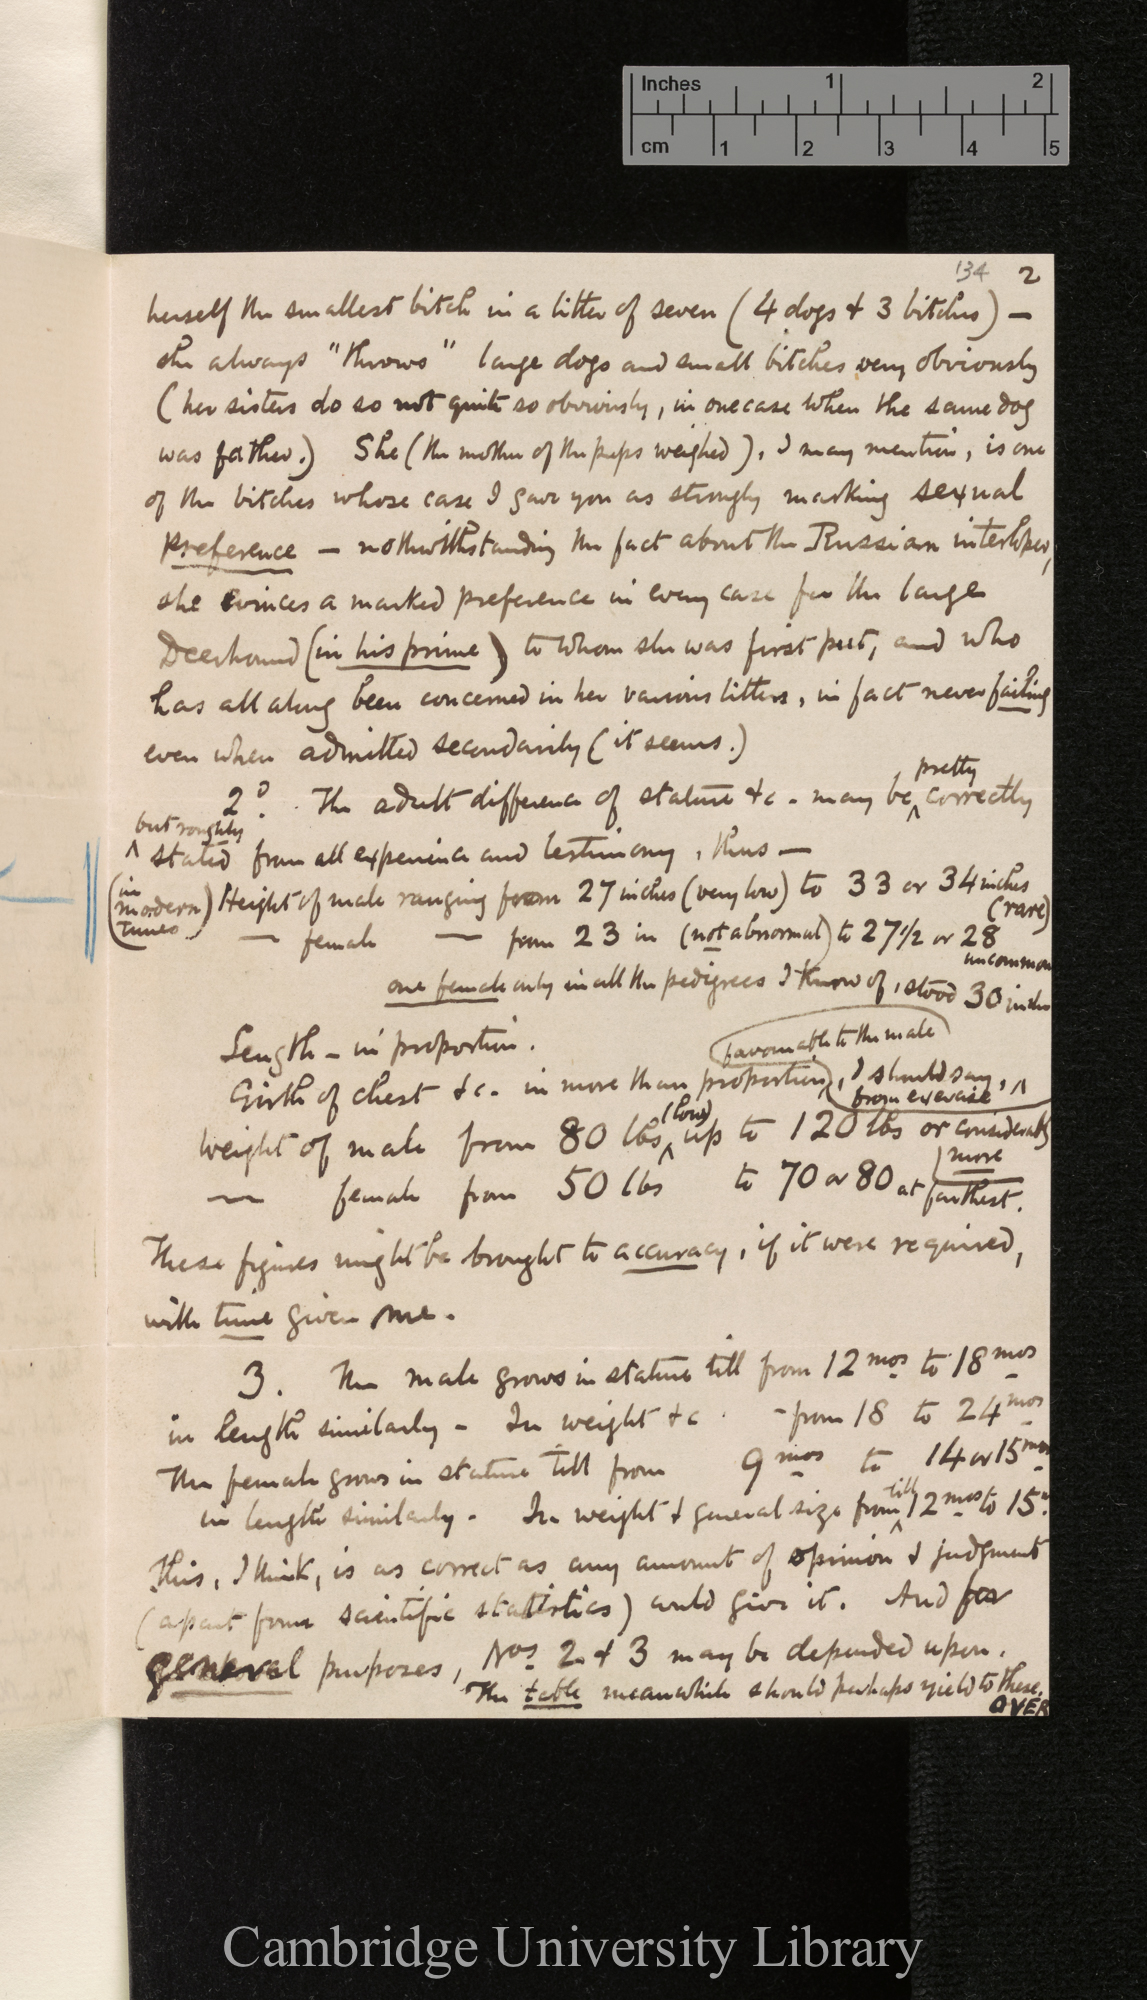 Inches 1 2
cm 1 2 3 4 5
134 2
herself the smallest bitch in a litter of seven (4 dogs & 3 bitches) —
she always "throws" large dogs and small bitches very obviously
(her sisters do so not quite so obviously, in one case when the same dog
was father.) She (the mother of the pups weighed), I may mention, is one
of the bitches whose case I gave you as strongly marking sexual
preference — nothwithstanding the fact about the Russian interloper,
she evinces a marked preference in every case for the large
Deerhound (in his prime) to whom she was first put, and who
has all along been concerned in her various litters, in fact never failing
even when admitted secondarily (it seems.)
pretty
2°. The adult difference of stature &c. may be correctly
but roughly
stated from all experience and testimony, thus —
(in modern times) Height of male ranging from 27 inches (very low) to 33 or 34 inches
(rare)
— female — from 23 in (not abnormal) to 27 1/2 or 28
uncommon
one female only in all the pedigrees I know of, stood 30 inches
Length – in proportion.
favourable to the male
Girth of chest &c. in more than proportion, I should say,
from exercise
(low)
Weight of male from 80 lbs up to 120 lbs or considerably
more
— female from 50 lbs to 70 or 80 at farthest.
These figures might be brought to accuracy, if it were required,
with time given me.
3. The male grows in stature till from 12 mos to 18 mos
in length similarly – In weight &c. – from 18 to 24 mos
The female grows in stature till from 9 mos to 14 or 15 mos
till
in length similarly. In weight & general size from 12 mos to 15 m.
This, I think, is as correct as any amount of opinion & judgment
(apart from scientific statistics) could give it. And for
general purposes, Nos 2 & 3 may be depended upon.
The table meanwhile should perhaps yield to these.
OVER
Cambridge University Library